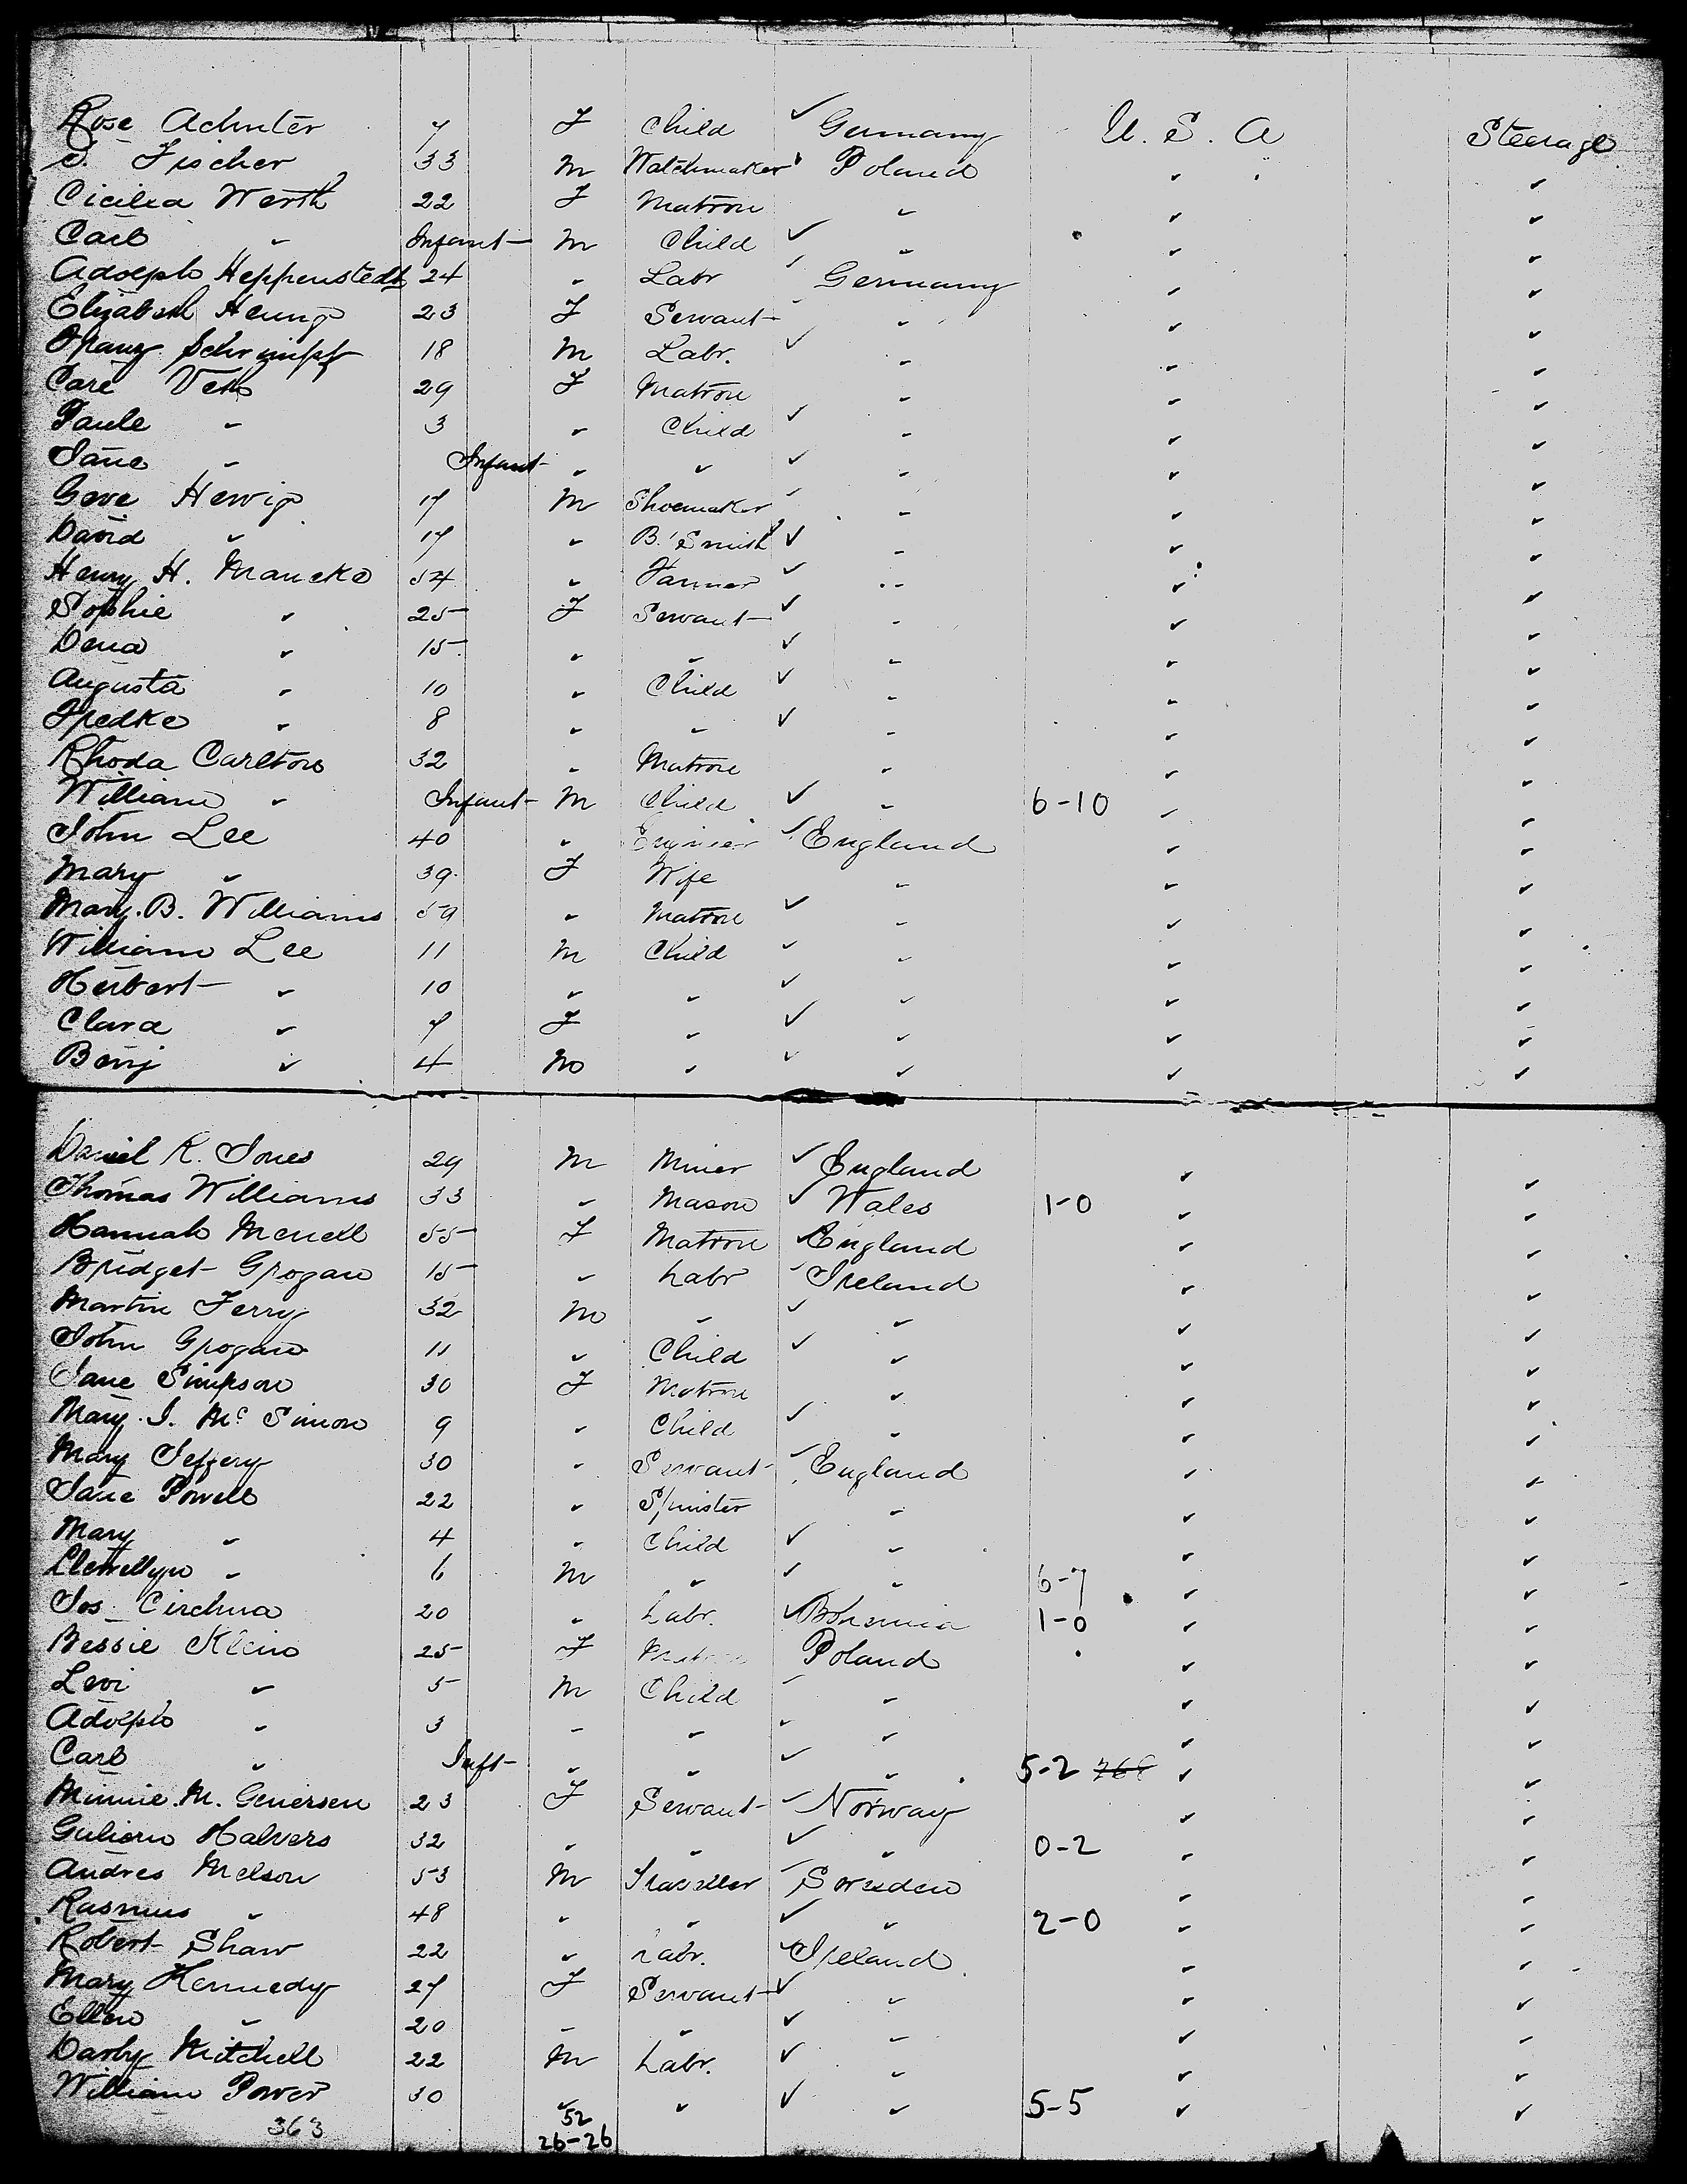 Rose Achuter 7 F Child ✓ Germany U. S. A Steerage
S. Fischer 33 M Watchmaker ✓ Poland " " ✓
Cicilia Werth 22 F Matron " ✓ ✓
Carl " Infant M Child ✓ " ✓ ✓
Adolph Heppenstedt 24 " Labr ✓ Germany ✓ ✓
Elizabeth Henng 23 F Servant " ✓ ✓
Franz Schrimpf 18 M Labr. ✓ " ✓ ✓
Care Veth 29 F Matron " ✓ ✓
Paule " 3 " Child ✓ " ✓ ✓
Jane " Infant " " ✓ " ✓ ✓
Geve Hewig 17 M Shoemaker ✓ " ✓ ✓
David " 17 " B. Smith ✓ " ✓ ✓
Henry H. Mancke 54 " Farmer ✓ " ✓ ✓
Sophie " 25 F Servant ✓ " ✓ ✓
Dena " 15 " " ✓ " ✓ ✓
Augusta " 10 " Child ✓ " ✓ ✓
Fredke " 8 " " ✓ " ✓ ✓
Rhoda Carlton 32 " Matron " ✓ ✓
William " Infant M Child ✓ " 6-10 ✓ ✓
John Lee 40 " Engineer ✓ England ✓ ✓
Mary " 39 F Wife " ✓ ✓
Mary. B. Williams 59 " Matron ✓ " ✓ ✓
William Lee 11 M Child ✓ " ✓ ✓
Herbert " 10 " " ✓ " ✓ ✓
Clara " 7 F " ✓ " ✓ ✓
Benj " 4 M " ✓ " ✓ ✓
Daniel R. Jones 29 M Miner ✓ England ✓ ✓
Thomas Williams 33 " Mason ✓ Wales 1-0 ✓ ✓
Hannah Merrell 55 F Matron ✓ England ✓ ✓
Bridget Grogan 15 " Labr ✓ Ireland ✓ ✓
Martin Ferry 32 M " ✓ " ✓ ✓
John Grogan 11 " Child ✓ " ✓ ✓
Jane Simpson 30 F Matron " ✓ ✓
Mary. J. Mc Simon 9 " Child ✓ " ✓ ✓
Mary Jeffery 30 " Servant ✓ England ✓ ✓
Jane Powell 22 " Spinster " ✓ ✓
Mary " 4 " Child ✓ " ✓ ✓
Llewellyn " 6 M " ✓ " 6-7 ✓ ✓
Jos. Circhwa 20 " Labr. ✓ Bohemia 1-0 ✓ ✓
Bessie Klein 25 F Matron Poland ✓ ✓
Levi " 5 M Child ✓ " ✓ ✓
Adolph " 3 " " ✓ " ✓ ✓
Carl " Inft " " ✓ " 5-2 ✓ ✓
Minnie. M. Geversen 23 F Servant ✓ Norway ✓ ✓
Guliern Halvers 32 " " ✓ " 0-2 ✓ ✓
Andres Melson 53 M Traveller ✓ Sweden ✓ ✓
Rasmus " 48 " " ✓ " 2-0 ✓ ✓
Robert Shaw 22 " Labr. ✓ Ireland ✓ ✓
Mary Kennedy 27 F Servant ✓ " ✓ ✓
Ellen " 20 " " ✓ " ✓ ✓
Darby Mitchell 22 M Labr. ✓ " ✓ ✓
William Power 30 " " ✓ " 5-5 ✓ ✓
363 52
26-26